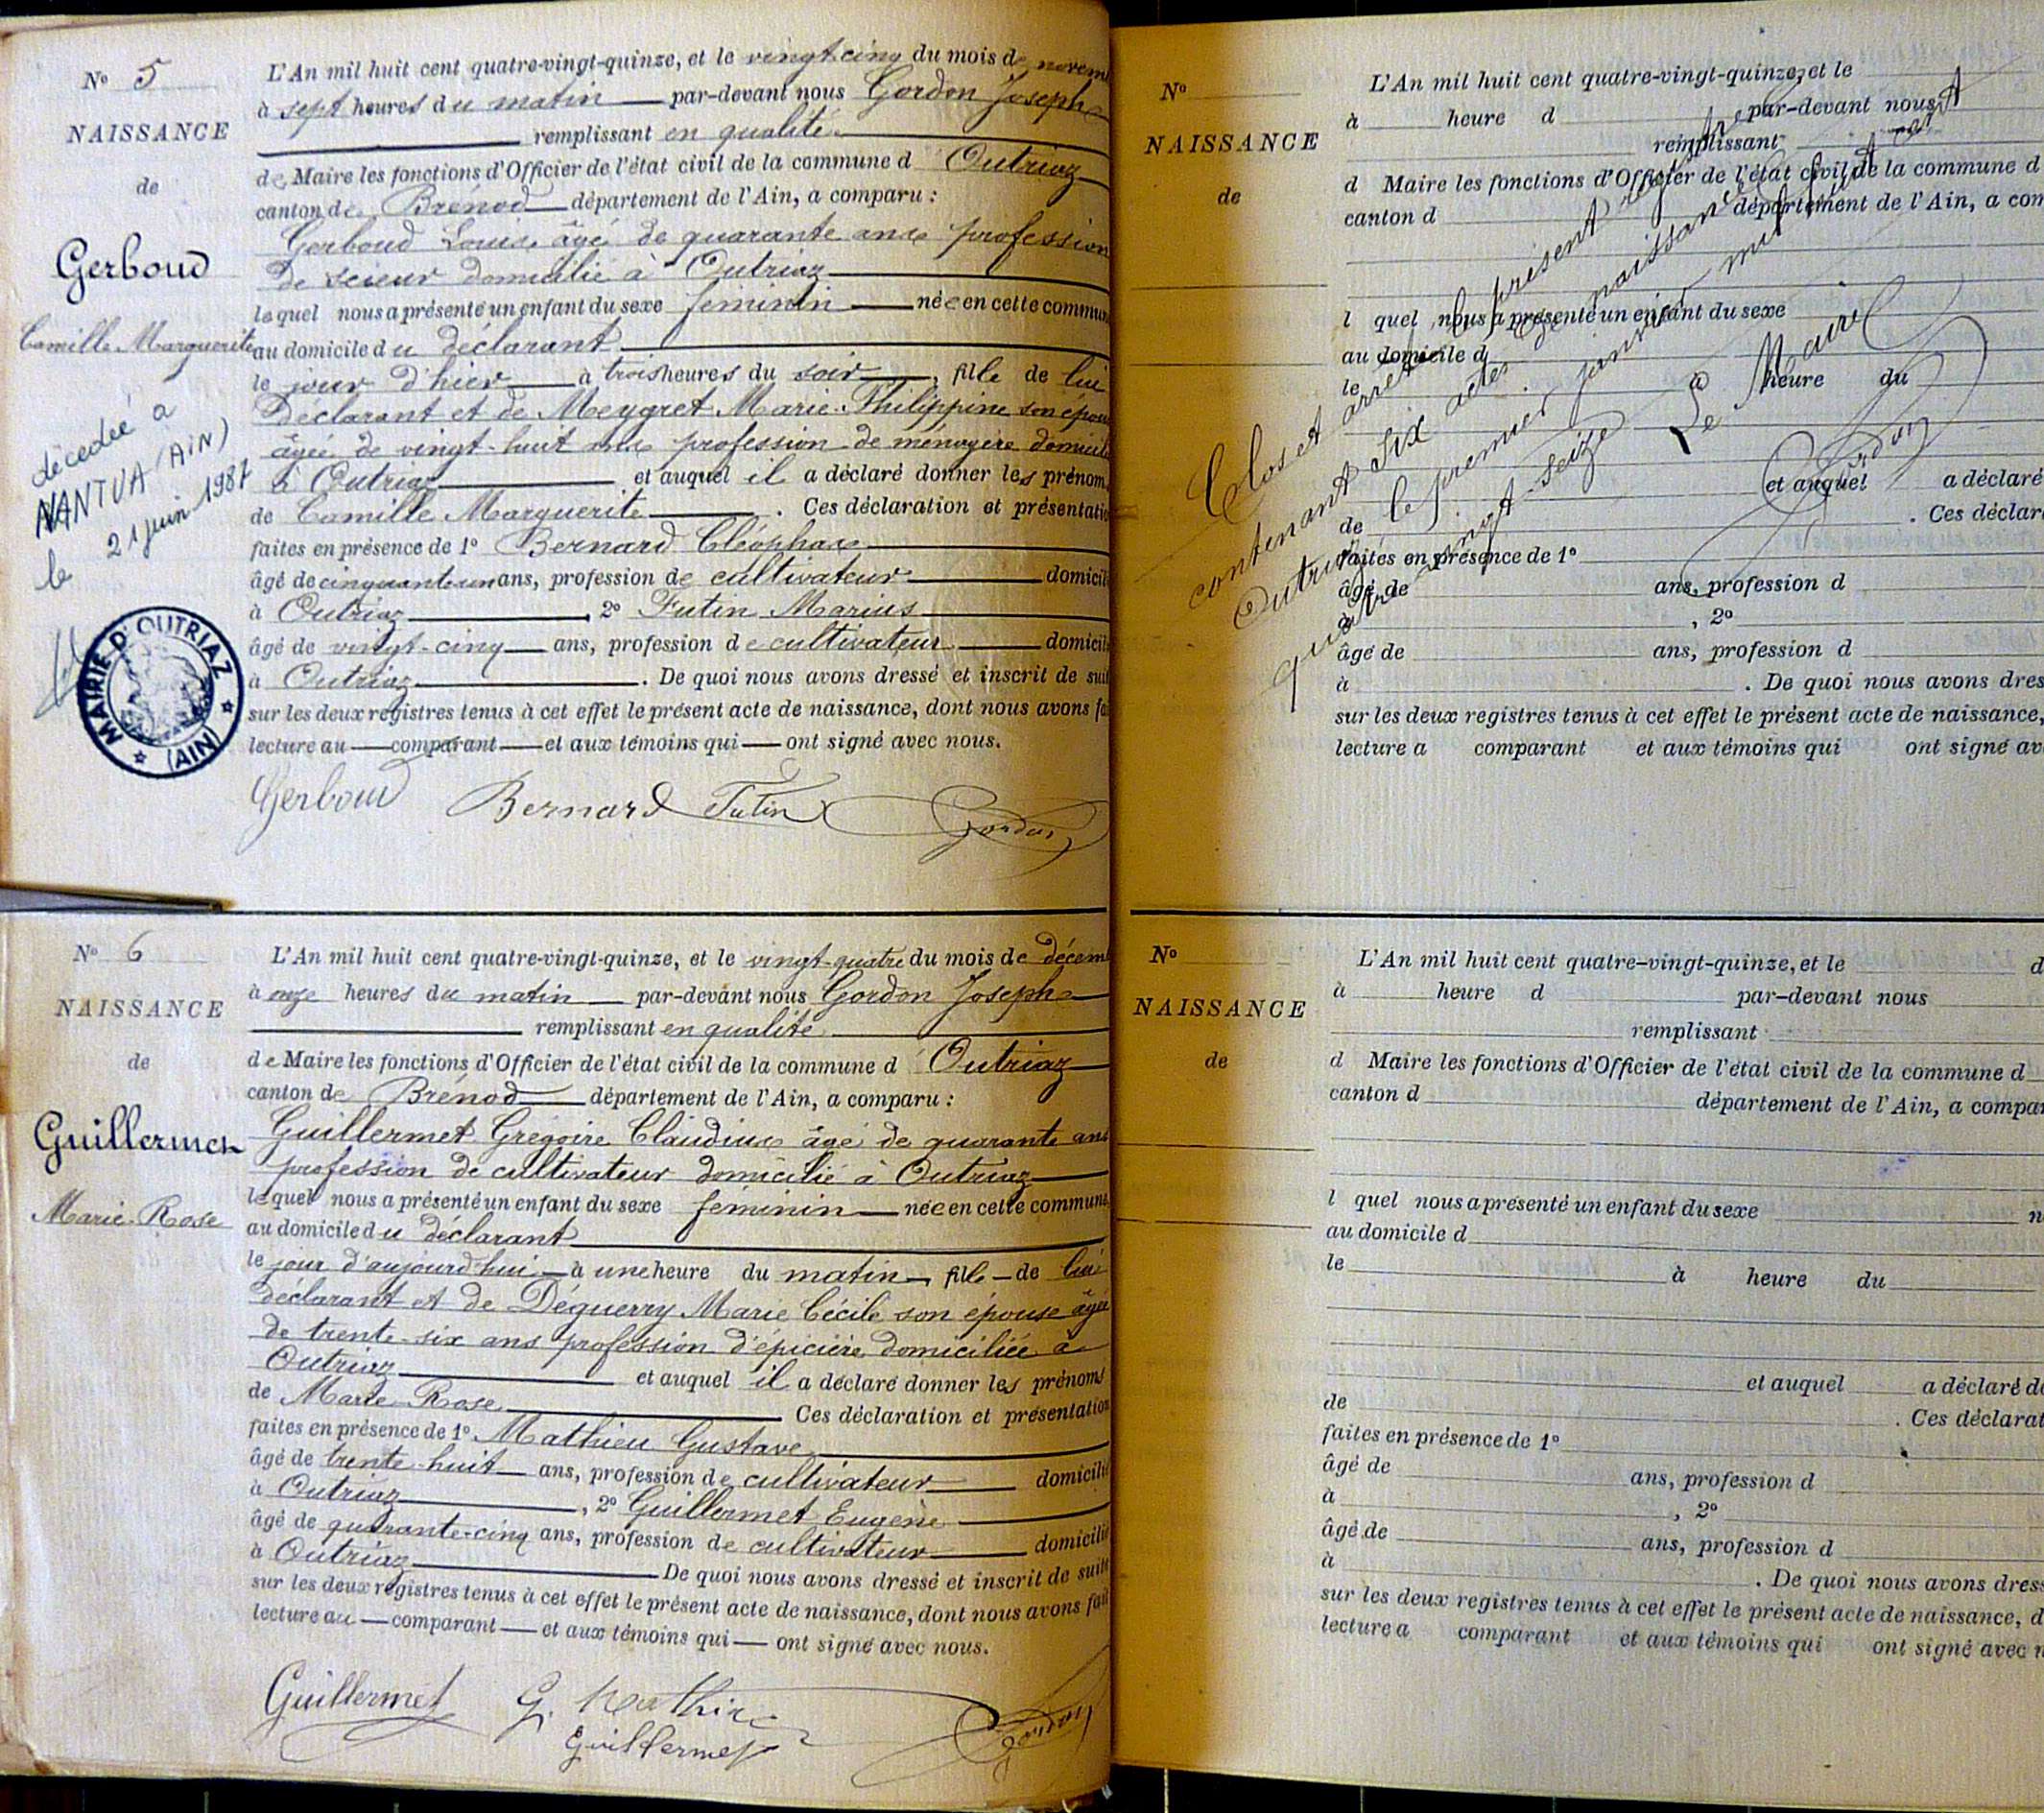 N° 5
NAISSANCE
de
Gerboud
Camille Marguerite
décedée a
NANTUA (AIN)
le 21 juin 1987
MAIRIE D'OUTRIAZ
(AIN)
L'An mil huit cent quatre-vingt-quinze, et le vingt cinq du mois de novem
à sept heures du matin par-devant nous Gordon Joseph
remplissant en qualité
de Maire les fonctions d'Officier de l'état civil de la commune d'Outriaz
canton de Brénod département de l'Ain, a comparu :
Gerboud Louis âgé de quarante ans profession
de scieur domicilié à Outriaz
lequel nous a présenté un enfant du sexe féminin née en cette commun
au domicile du déclarant
le jour d'hier à trois heures du soir, fille de lui
Déclarant et de Meygret Marie Philippine son épou
âgée de vingt-huit ans profession de ménagère domicil
à Outriaz et auquel il a déclaré donner les prénom
de Camille Marguerite. Ces déclaration et présentatio
faites en présence de 1° Bernard Cléophas
âgé de cinquante un ans, profession de cultivateur domicil
à Outriaz, 2° Futin Marius
âgé de vingt-cinq ans, profession de cultivateur domicil
à Outriaz. De quoi nous avons dressé et inscrit de suit
sur les deux registres tenus à cet effet le présent acte de naissance, dont nous avons fa
lecture au comparant et aux témoins qui ont signé avec nous.
Gerboud Bernard Futin Gordon
N° 6
NAISSANCE
de
Guillermet
Marie-Rose
L'An mil huit cent quatre-vingt-quinze, et le vingt-quatre du mois de décem
à onze heures du matin par-devant nous Gordon Joseph
remplissant en qualité
de Maire les fonctions d'Officier de l'état civil de la commune d'Outriaz
canton de Brénod département de l'Ain, a comparu :
Guillermet Grégoire Claudius âgé de quarante ans
profession de cultivateur domicilié à Outriaz
lequel nous a présenté un enfant du sexe féminin née en cette commune
au domicile du déclarant
le jour d'aujourd'hui à une heure du matin, fille de lui
déclarant et de Déguerry Marie Cécile son épouse âgée
de trente-six ans profession d'épicière domiciliée à
Outriaz et auquel il a déclaré donner les prénoms
de Marie-Rose Ces déclaration et présentation
faites en présence de 1° Mathieu Gustave
âgé de trente-huit ans, profession de cultivateur domicilié
à Outriaz, 2° Guillermet Eugène
âgé de quarante-cinq ans, profession de cultivateur domicilié
à Outriaz De quoi nous avons dressé et inscrit de suite
sur les deux registres tenus à cet effet le présent acte de naissance, dont nous avons fait
lecture au comparant et aux témoins qui ont signé avec nous.
Guillermet G. Mathieu Gordon
Guillermet
N°
NAISSANCE
de
L'An mil huit cent quatre-vingt-quinze, et le
à heure d par-devant nous
remplissant
d Maire les fonctions d'Officier de l'état civil de la commune d
canton d département de l'Ain, a com
l quel nous a présenté un enfant du sexe
au domicile d
le à heure du
et auquel a déclaré
de . Ces déclar
faites en présence de 1°
âgé de ans, profession d
à , 2°
âgé de ans, profession d
à . De quoi nous avons dres
sur les deux registres tenus à cet effet le présent acte de naissance,
lecture a comparant et aux témoins qui ont signé av
Clos et arrêté le présent registre
contenant six actes de naissance
Outriaz le premier janvier mil huit cent
quatre vingt-seize
Le Maire
Gordon
N°
NAISSANCE
de
L'An mil huit cent quatre-vingt-quinze, et le d
à heure d par-devant nous
remplissant
d Maire les fonctions d'Officier de l'état civil de la commune d
canton d département de l'Ain, a compar
l quel nous a présenté un enfant du sexe n
au domicile d
le à heure du
et auquel a déclaré d
de . Ces déclarat
faites en présence de 1°
âgé de ans, profession d
à , 2°
âgé de ans, profession d
à . De quoi nous avons dres
sur les deux registres tenus à cet effet le présent acte de naissance, d
lecture a comparant et aux témoins qui ont signé avec n